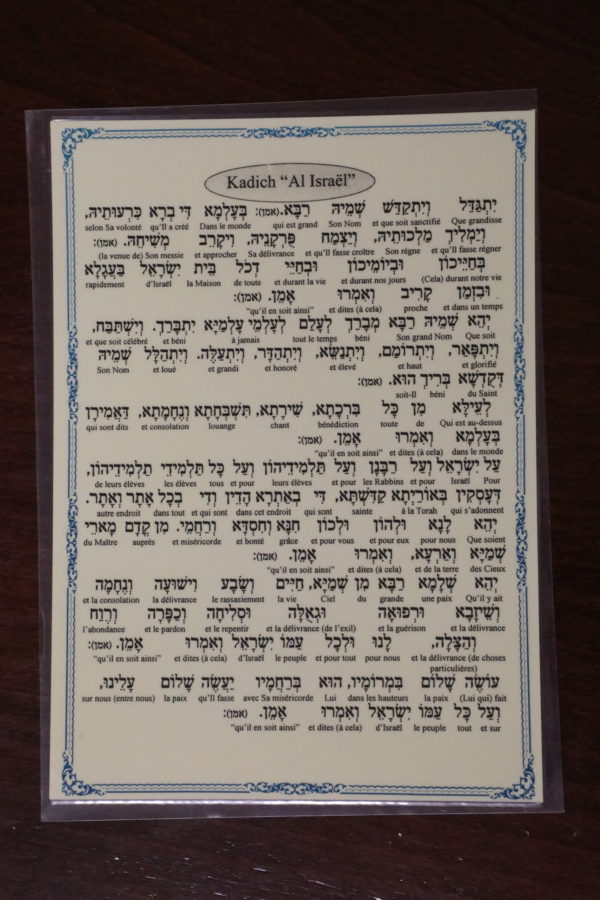 Kadich “Al Israël”
יִתְגַּדַּל וְיִתְקַדַּשׁ שְׁמֵיהּ רַבָּא. (אמן): בְּעָלְמָא דִּי בְרָא כִּרְעוּתֵיהּ,
selon Sa volonté qu'Il a créé Dans le monde qui est grand Son Nom et que soit sanctifié Que grandisse
וְיַמְלִיךְ מַלְכוּתֵיהּ, וְיַצְמַח פֻּרְקָנֵיהּ, וִיקָרֵב מְשִׁיחֵהּ. (אמן):
(la venue de) Son messie et approcher Sa délivrance et qu'Il fasse croître Son règne et qu'Il fasse régner
בְּחַיֵּיכוֹן וּבְיוֹמֵיכוֹן וּבְחַיֵּי דְכֹל בֵּית יִשְׂרָאֵל בַּעֲגָלָא
rapidement d'Israël la Maison de toute et durant la vie et durant nos jours (Cela) durant notre vie
וּבִזְמַן קָרִיב וְאִמְרוּ אָמֵן. (אמן):
“qu'il en soit ainsi” et dites (à cela) proche et dans un temps
יְהֵא שְׁמֵיהּ רַבָּא מְבָרַךְ לְעָלַם לְעָלְמֵי עָלְמַיָּא יִתְבָּרַךְ. וְיִשְׁתַּבַּח,
et que soit célébré et béni à jamais tout le temps béni Son grand Nom Que soit
וְיִתְפָּאַר, וְיִתְרוֹמַם, וְיִתְנַשֵּׂא, וְיִתְהַדָּר, וְיִתְעַלֶּה. וְיִתְהַלָּל שְׁמֵיהּ
Son Nom et loué et grandi et honoré et élevé et haut et glorifié
דְּקֻדְשָׁא בְּרִיךְ הוּא. (אמן):
soit-Il béni du Saint
לְעֵילָּא מִן כָּל בִּרְכָתָא, שִׁירָתָא, תִּשְׁבְּחָתָא וְנֶחֱמָתָא, דַּאֲמִירָן
qui sont dits et consolation louange chant bénédiction toute de Qui est au-dessus
בְּעָלְמָא וְאִמְרוּ אָמֵן. (אמן):
“qu'il en soit ainsi” et dites (à cela) dans le monde
עַל יִשְׂרָאֵל וְעַל רַבָּנָן וְעַל תַּלְמִידֵיהוֹן וְעַל כָּל תַּלְמִידֵי תַלְמִידֵיהוֹן,
de leurs élèves les élèves tous et pour leurs élèves et pour les Rabbins et pour Israël Pour
דְּעָסְקִין בְּאוֹרַיְתָא קַדִּשְׁתָּא, דִּי בְאַתְרָא הָדֵין וְדִי בְכָל אֲתַר וַאֲתַר.
autre endroit dans tout et qui sont dans cet endroit qui sont sainte à la Torah qui s'adonnent
יְהֵא לָנָא וּלְהוֹן וּלְכוֹן חִנָּא וְחִסְדָּא וְרַחֲמֵי. מִן קֳדָם מָארֵי
du Maître auprès et miséricorde et bonté grâce et pour vous et pour eux pour nous Que soient
שְׁמַיָּא וְאַרְעָא, וְאִמְרוּ אָמֵן. (אמן):
“qu'il en soit ainsi” et dites (à cela) et de la terre des Cieux
יְהֵא שְׁלָמָא רַבָּא מִן שְׁמַיָּא, חַיִּים וְשָׂבָע וִישׁוּעָה וְנֶחָמָה
et la consolation la délivrance le rassasiement la vie Ciel du grande une paix Qu'il y ait
וְשֵׁיזָבָא וּרְפוּאָה וּגְאֻלָּה וּסְלִיחָה וְכַפָּרָה וְרֶוַח
l'abondance et le pardon et le repentir et la délivrance (de l'exil) et la guérison et la délivrance
וְהַצָּלָה, לָנוּ וּלְכָל עַמּוֹ יִשְׂרָאֵל וְאִמְרוּ אָמֵן. (אמן):
“qu'il en soit ainsi” et dites (à cela) d'Israël le peuple et pour tout pour nous et la délivrance (de choses
particulières)
עוֹשֶׂה שָׁלוֹם בִּמְרוֹמָיו, הוּא בְּרַחֲמָיו יַעֲשֶׂה שָׁלוֹם עָלֵינוּ,
sur nous (entre nous) la paix qu'Il fasse avec Sa miséricorde Lui dans les hauteurs la paix (Lui qui) fait
וְעַל כָּל עַמּוֹ יִשְׂרָאֵל וְאִמְרוּ אָמֵן. (אמן):
“qu'il en soit ainsi” et dites (à cela) d'Israël le peuple tout et sur